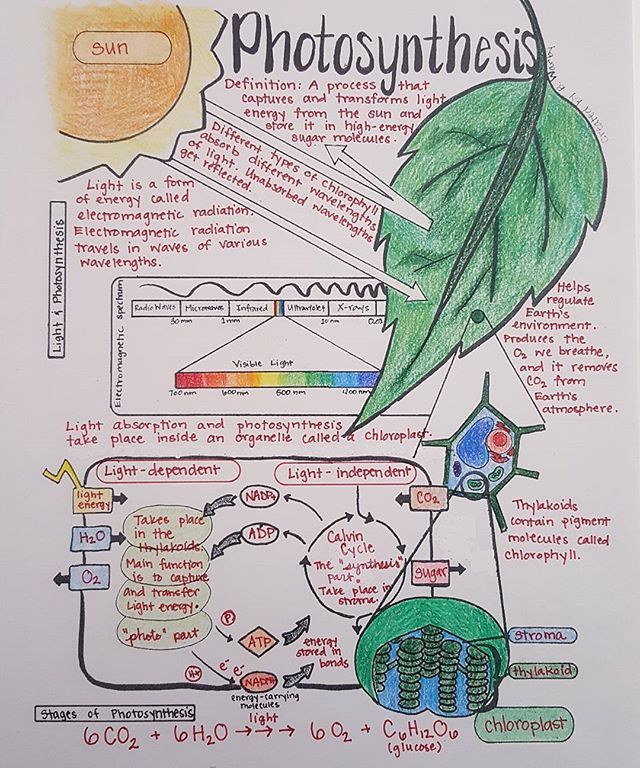 sun
Photosynthesis
Created by B. Wamy
Definition: A process that
captures and transforms light
energy from the sun and
store it in high-energy
sugar molecules.
Different types of chlorophyll
absorb different wavelengths
of light. Unabsorbed wavelengths
get reflected.
Light & Photosynthesis
Light is a form
of energy called
electromagnetic radiation.
Electromagnetic radiation
travels in waves of various
wavelengths.
Electromagnetic spectrum
Radio Waves Microwaves Infrared Ultraviolet X-rays
30 mm 1mm 10 nm
Visible Light
700 nm 600nm 500 nm 400 nm
Helps
regulate
Earth's
environment.
Produces the
O2 we breathe,
and it removes
CO2 from
Earth's
atmosphere.
Light absorption and photosynthesis
take place inside an organelle called a chloroplast.
Light-dependent
Light-independent
light
energy
H2O
O2
Takes place
in the
thylakoids.
Main function
is to capture
and transfer
Light energy.
"photo" part
NADP+
ADP
Calvin
Cycle
The "synthesis"
part.
Take place in
stroma.
CO2
sugar
P
ATP
energy
stored in
bonds
H+
e- e-
NADPH
energy-carrying
molecules
Thylakoids
contain pigment
molecules called
chlorophyll.
stroma
thylakoid
chloroplast
Stages of Photosynthesis
light
6CO2 + 6H2O → → → 6O2 + C6H12O6
(glucose)